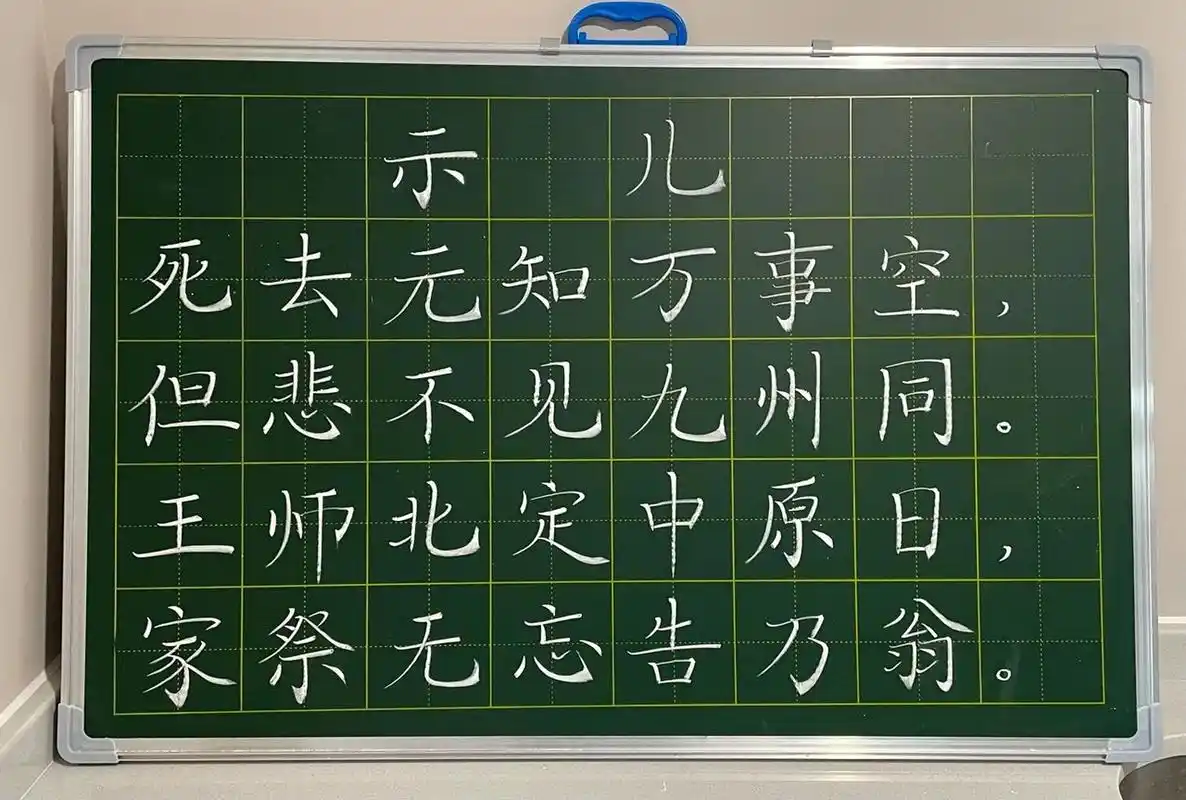 示儿
死去元知万事空，
但悲不见九州同。
王师北定中原日，
家祭无忘告乃翁。